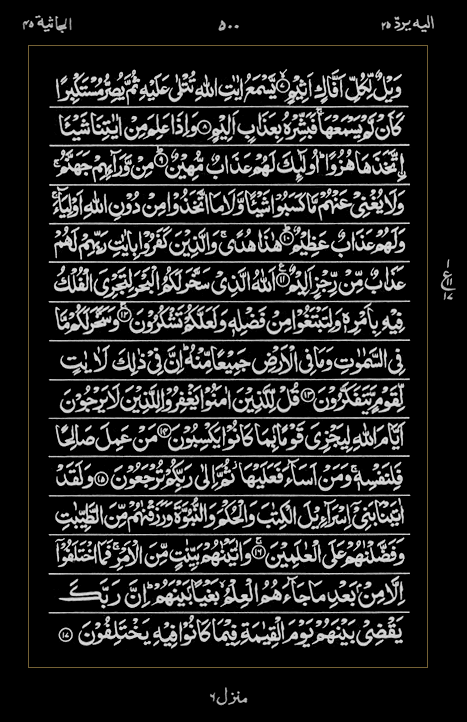 اليه يردّ ٢٥ ٥٠٠ الجاثية ٤٥
وَيْلٌ لِّكُلِّ اَفَّاكٍ اَثِيْمٍۙ۷ يَّسْمَعُ اٰيٰتِ اللّٰهِ تُتْلٰى عَلَيْهِ ثُمَّ يُصِرُّ مُسْتَكْبِرًا
كَاَنْ لَّمْ يَسْمَعْهَاۚ فَبَشِّرْهُ بِعَذَابٍ اَلِيْمٍ۸ وَاِذَا عَلِمَ مِنْ اٰيٰتِنَا شَيْئًا
اِۨتَّخَذَهَا هُزُوًاؕ اُولٰٓئِكَ لَهُمْ عَذَابٌ مُّهِيْنٌؕ۹ مِنْ وَّرَآئِهِمْ جَهَنَّمُۚ
وَلَا يُغْنِىْ عَنْهُمْ مَّا كَسَبُوْا شَيْئًا وَّلَا مَا اتَّخَذُوْا مِنْ دُوْنِ اللّٰهِ اَوْلِيَآءَۚ
وَلَهُمْ عَذَابٌ عَظِيْمٌؕ۱۰ هٰذَا هُدًىۚ وَالَّذِيْنَ كَفَرُوْا بِاٰيٰتِ رَبِّهِمْ لَهُمْ
عَذَابٌ مِّنْ رِّجْزٍ اَلِيْمٌ۱۱ اَللّٰهُ الَّذِىْ سَخَّرَ لَكُمُ الْبَحْرَ لِتَجْرِىَ الْفُلْكُ
فِيْهِ بِاَمْرِهٖ وَلِتَبْتَغُوْا مِنْ فَضْلِهٖ وَلَعَلَّكُمْ تَشْكُرُوْنَۚ۱۲ وَسَخَّرَ لَكُمْ مَّا
فِى السَّمٰوٰتِ وَمَا فِى الْاَرْضِ جَمِيْعًا مِّنْهُؕ اِنَّ فِىْ ذٰلِكَ لَاٰيٰتٍ
لِّقَوْمٍ يَّتَفَكَّرُوْنَ۱۳ قُلْ لِّلَّذِيْنَ اٰمَنُوْا يَغْفِرُوْا لِلَّذِيْنَ لَا يَرْجُوْنَ
اَيَّامَ اللّٰهِ لِيَجْزِىَ قَوْمًا بِمَا كَانُوْا يَكْسِبُوْنَ۱۴ مَنْ عَمِلَ صَالِحًا
فَلِنَفْسِهٖۚ وَمَنْ اَسَآءَ فَعَلَيْهَاؗ ثُمَّ اِلٰى رَبِّكُمْ تُرْجَعُوْنَ۱۵ وَلَقَدْ
اٰتَيْنَا بَنِىْٓ اِسْرَآءِيْلَ الْكِتٰبَ وَالْحُكْمَ وَالنُّبُوَّةَ وَرَزَقْنٰهُمْ مِّنَ الطَّيِّبٰتِ
وَفَضَّلْنٰهُمْ عَلَى الْعٰلَمِيْنَۚ۱۶ وَاٰتَيْنٰهُمْ بَيِّنٰتٍ مِّنَ الْاَمْرِۚ فَمَا اخْتَلَفُوْٓا
اِلَّا مِنْۢ بَعْدِ مَا جَآءَهُمُ الْعِلْمُۙ بَغْيًۢا بَيْنَهُمْؕ اِنَّ رَبَّكَ
يَقْضِىْ بَيْنَهُمْ يَوْمَ الْقِيٰمَةِ فِيْمَا كَانُوْا فِيْهِ يَخْتَلِفُوْنَ۱۷
۱
ع
۱۱
۱۷
منزل ٦